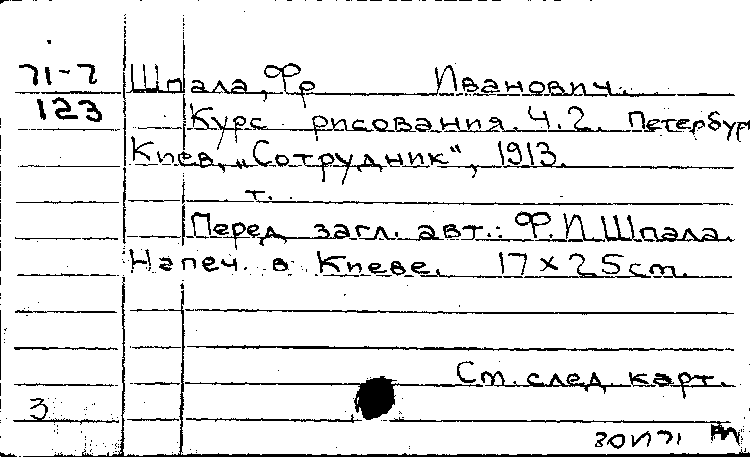 71-7 Шпала, Фр Иванович.
123 Курс рисования. Ч.2. Петербург
Киев, „Сотрудник", 1913.
т.
Перед загл. авт.: Ф.И.Шпала.
Напеч. в Киеве. 17×25cm.
Ст. след карт.
3
30VI71